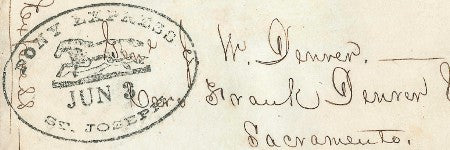 PONY EXPRESS
JUN 3
ST. JOSEPH
Gen W. Denver.
Care Frank Denver
Sacramento.